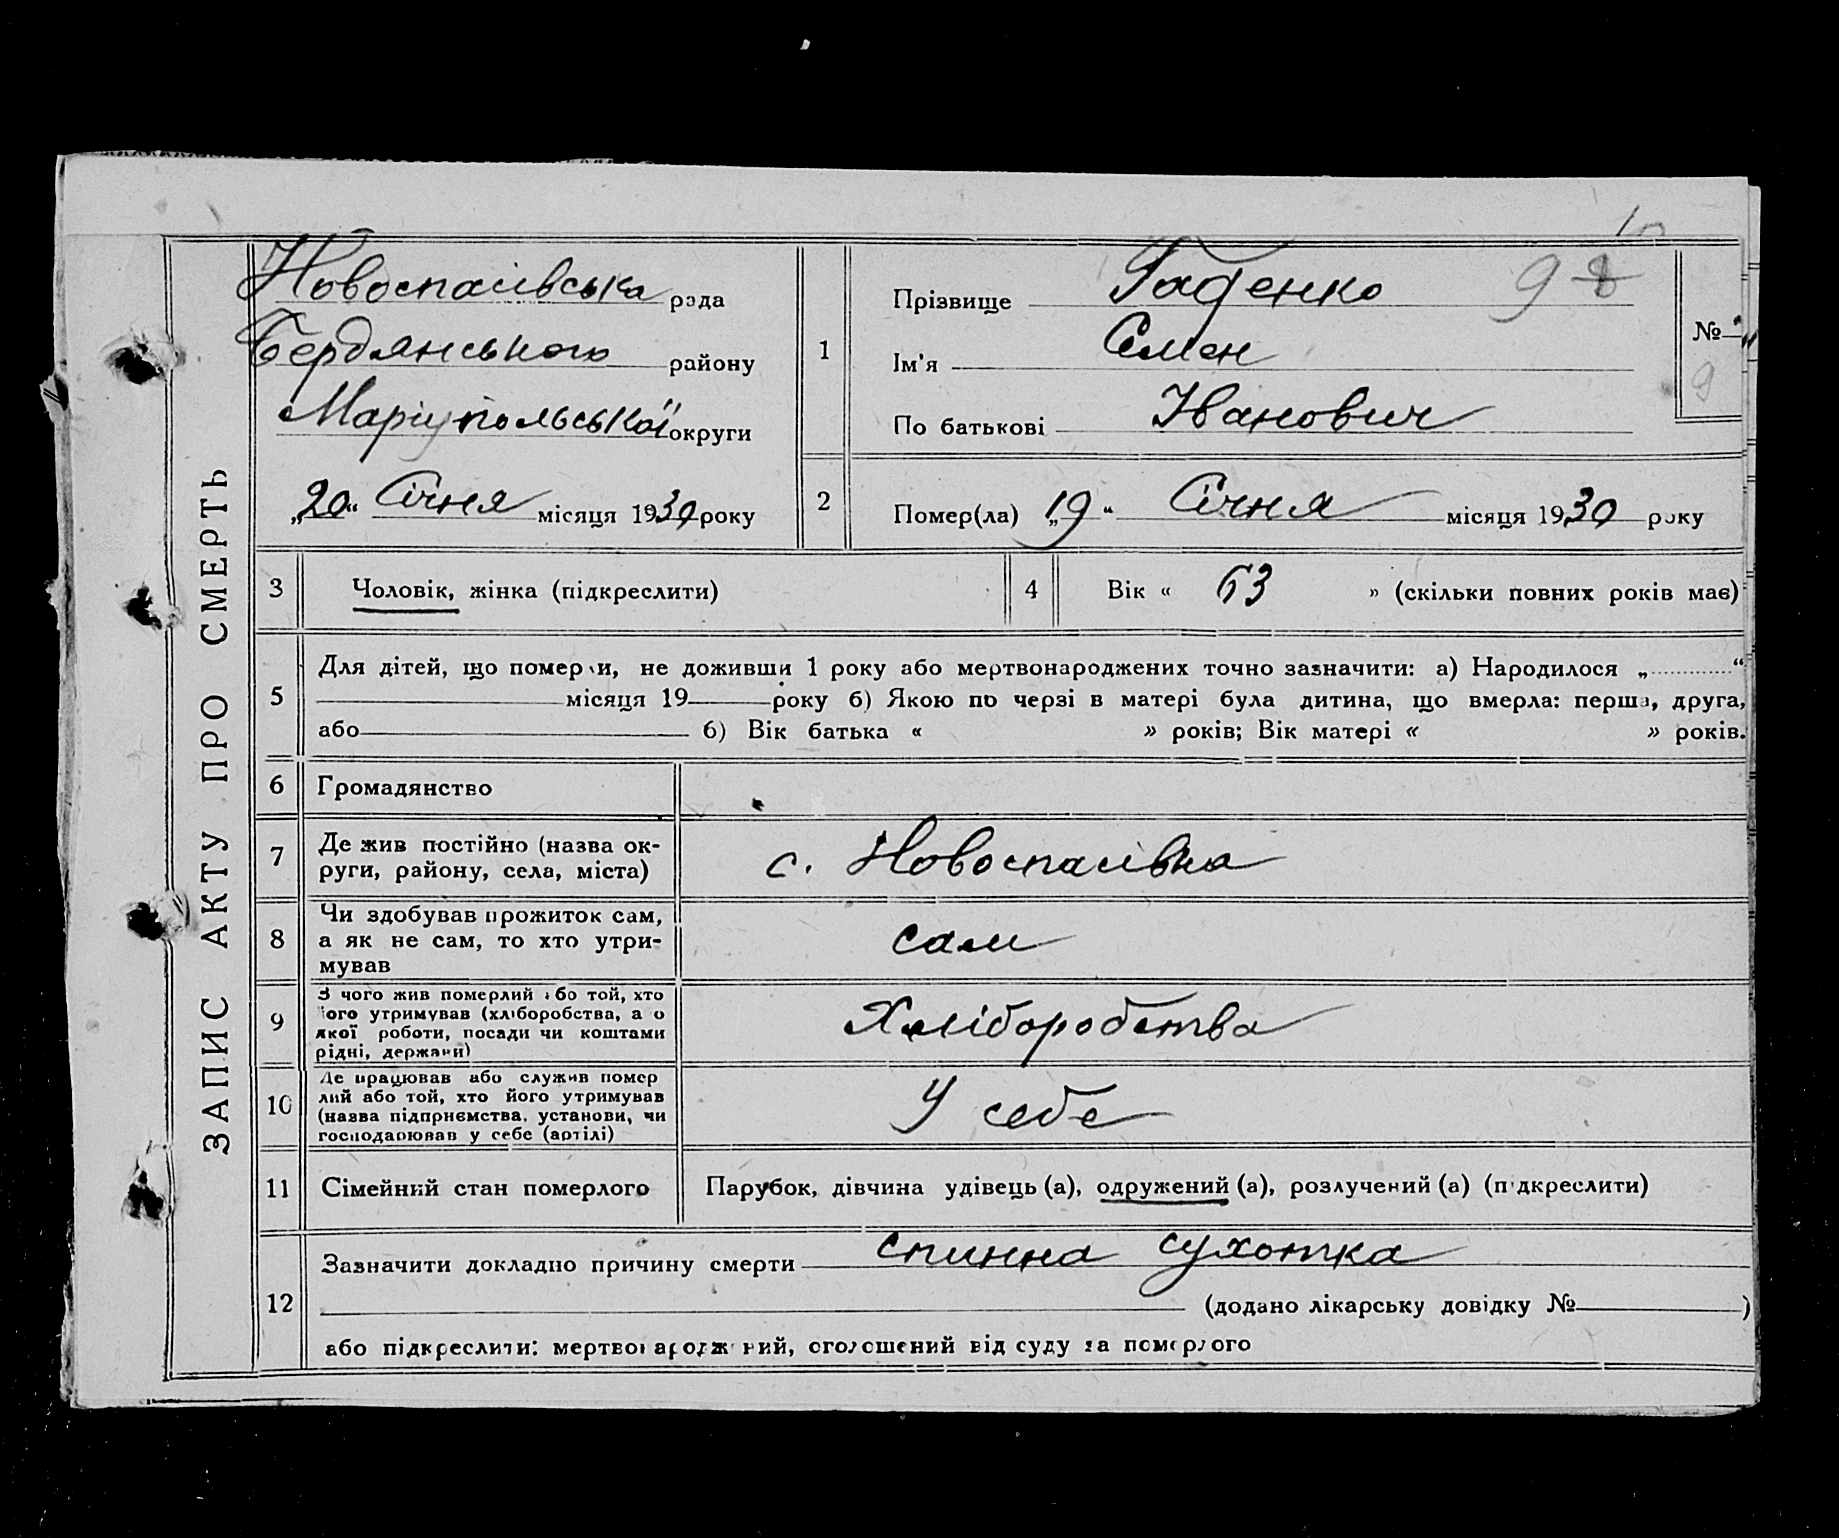 ЗАПИС АКТУ ПРО СМЕРТЬ
Новоспасівська рада
Бердянського району
Маріупольської округи
„20“ Січня місяця 1930 року
1
Прізвище Гаденко 9 8
Ім'я Семен
По батькові Іванович
№
9
2
Помер(ла) „19“ Січня місяця 1930 року
3 Чоловік, жінка (підкреслити)
4 Вік « 63 » (скільки повних років має)
5 Для дітей, що померли, не доживши 1 року або мертвонароджених точно зазначити: а) Народилося „ “
місяця 19 року б) Якою по черзі в матері була дитина, що вмерла: перша, друга,
або б) Вік батька « » років; Вік матері « » років.
6 Громадянство
7 Де жив постійно (назва ок-
руги, району, села, міста)
с. Новоспасівка
8 Чи здобував прожиток сам,
а як не сам, то хто утри-
мував
сам
9 З чого жив померлий або той, хто
його утримував (хліборобства, а о
якої роботи, посади чи коштами
рідні, держави)
Хліборобства
10 Де працював або служив помер
лий або той, хто його утримував
(назва підприємства, установи, чи
господарював у себе (артілі)
У себе
11 Сімейний стан померлого
Парубок, дівчина удівець (а), одружений (а), розлучений (а) (підкреслити)
12 Зазначити докладно причину смерти спинна сухотка
(додано лікарську довідку № )
або підкреслити: мертвонароджений, оголошений від суду за померлого